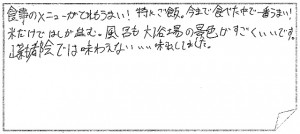 食事のメニューがとてもうまい！特にご飯。今まで食べた中で一番うまい！
水だけではしが進む。風呂も大浴場の景色がすごくいいです。
では味わえないいい味わいでした。